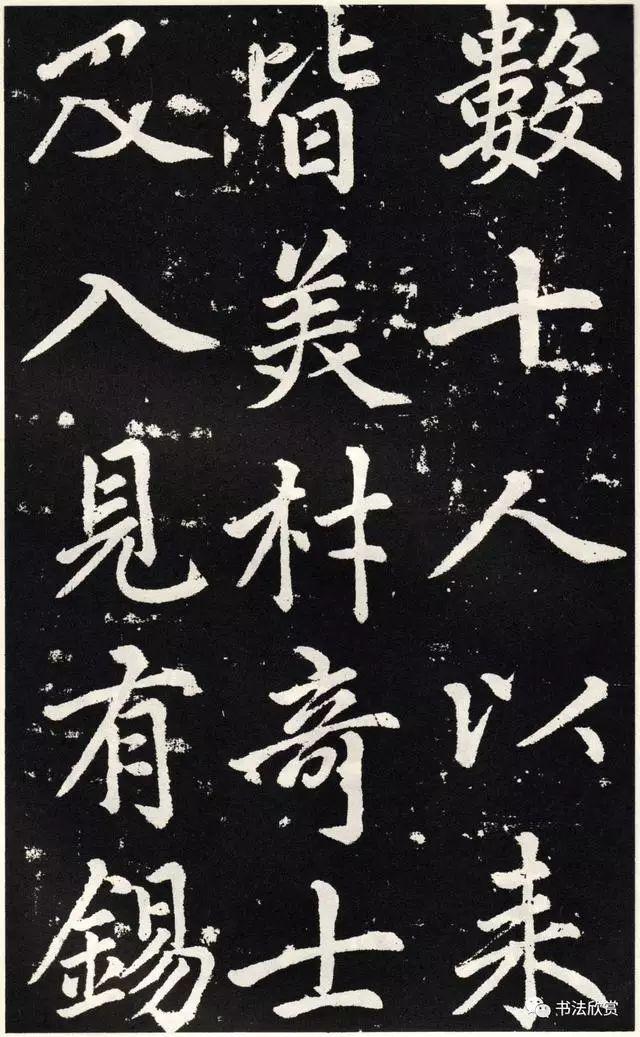 數十人以来
皆美材竒士
及入見有錫
书法欣赏